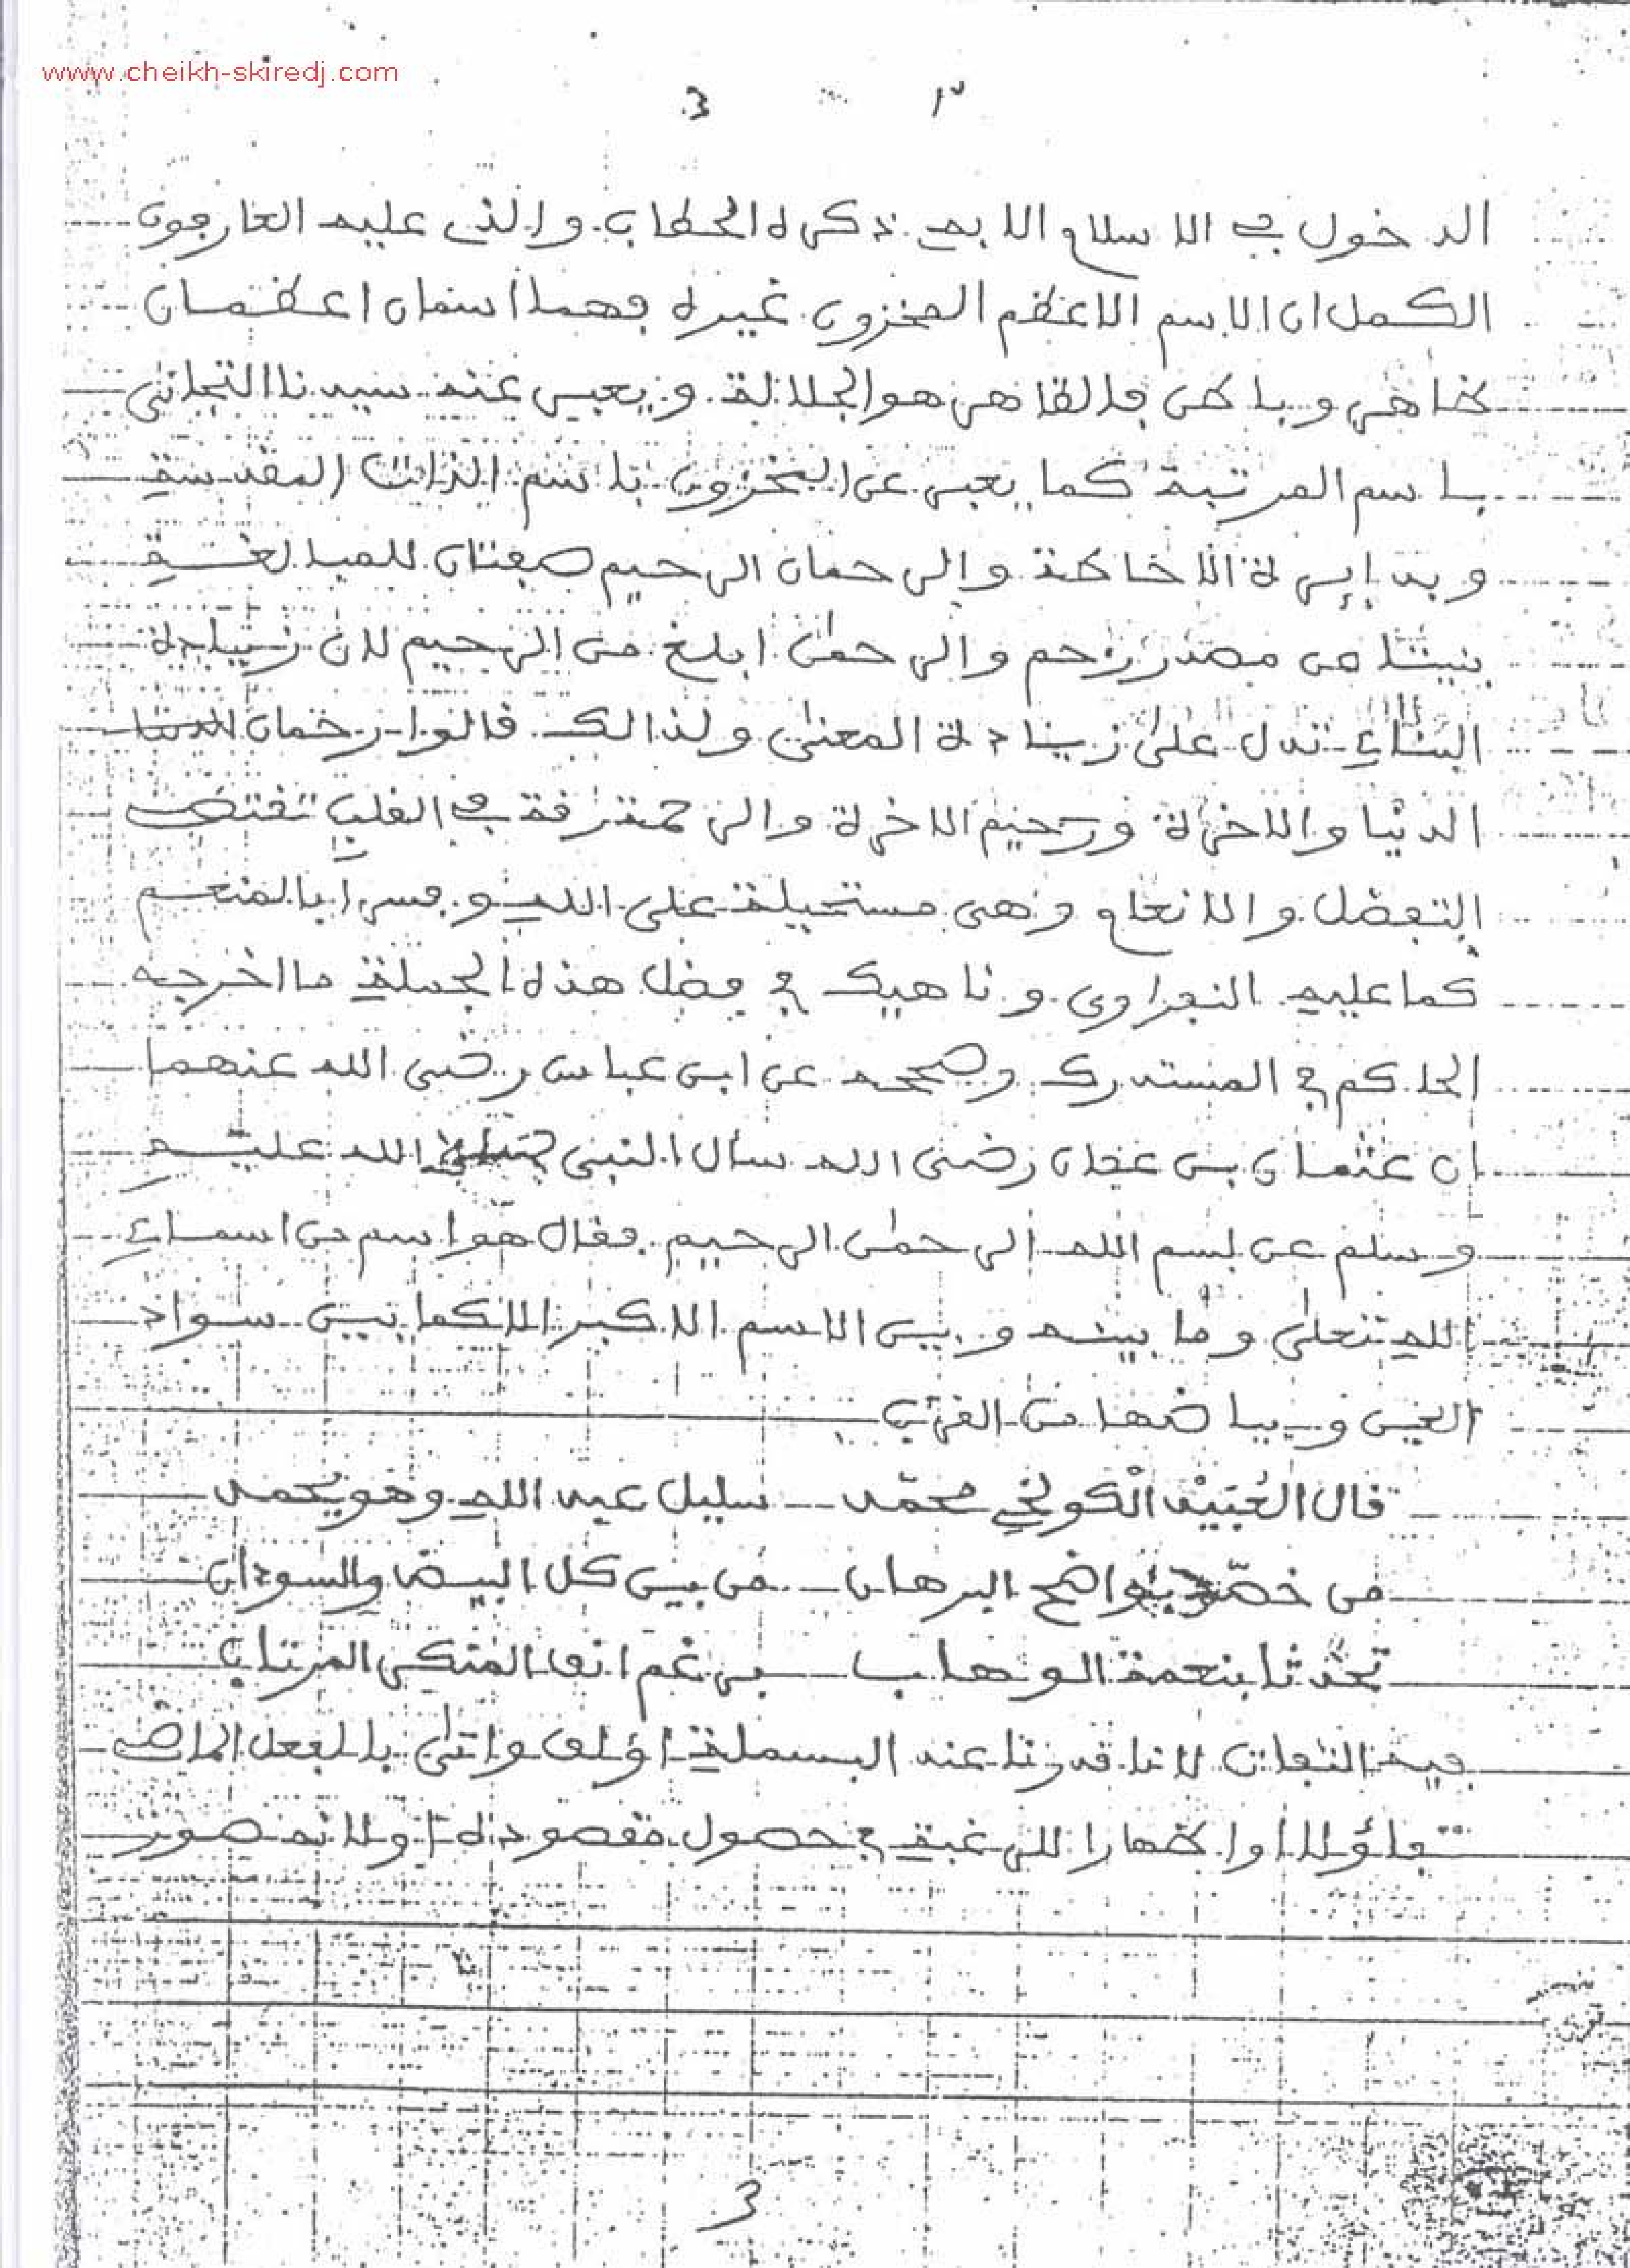 www.cheikh-skiredj.com
3 ٣
الدخول في الاسلام الا به ذكره الحطاب والذى عليه العارفون
الكمل ان الاسم الاعظم المخزون غيره فهما اسمان اعظمان
ظاهر وباطن فالظاهر هو الجلالة ويعبر عنه سيدنا التجانى
باسم المرتبة كما يعبر عن المخزون باسم الذات المقدسة
وبدإيرة الاحاطة والرحمان الرحيم صفتان للمبالغة
بنيتا من مصدر رحم والرحمٰن ابلغ من الرحيم لان زيادة
البناء تدل على زيادة المعنى ولذالك قالوا رحمان
الدنيا والاخرة ورحيم الاخرة والرحمة رقة في القلب تقتضى
التفضل والانعام وهى مستحيلة على الله وفسرا بالمنعم
كما عليه النفراوى وناهيك في فضل هذه الجملة ما اخرجه
الحاكم في المستدرك وصححه عن ابن عباس رضى الله عنهما
ان عثمان بن عفان رضى الله سأل النبى صلى الله عليه
وسلم عن بسم الله الرحمٰن الرحيم فقال هو اسم من اسماء
الله تعلى وما بينه وبين الاسم الاكبر الا كما بين سواد
العين وبياضها من القرب
قال العُبَيْد الْكَولخِي محمّد سليل عبد الله وهو يحمد
من خصّه بواضح البرهان من بين كل البيض والسودان
تحدثا بنعمة الوهاب برغم انف المنكر المرتاب
فيه التفات لانا قدرنا عند البسملة اؤلف واتى بالفعل الماضى
تفاؤلا واظهارا للرغبة في حصول مقصوده او لانه صور
3